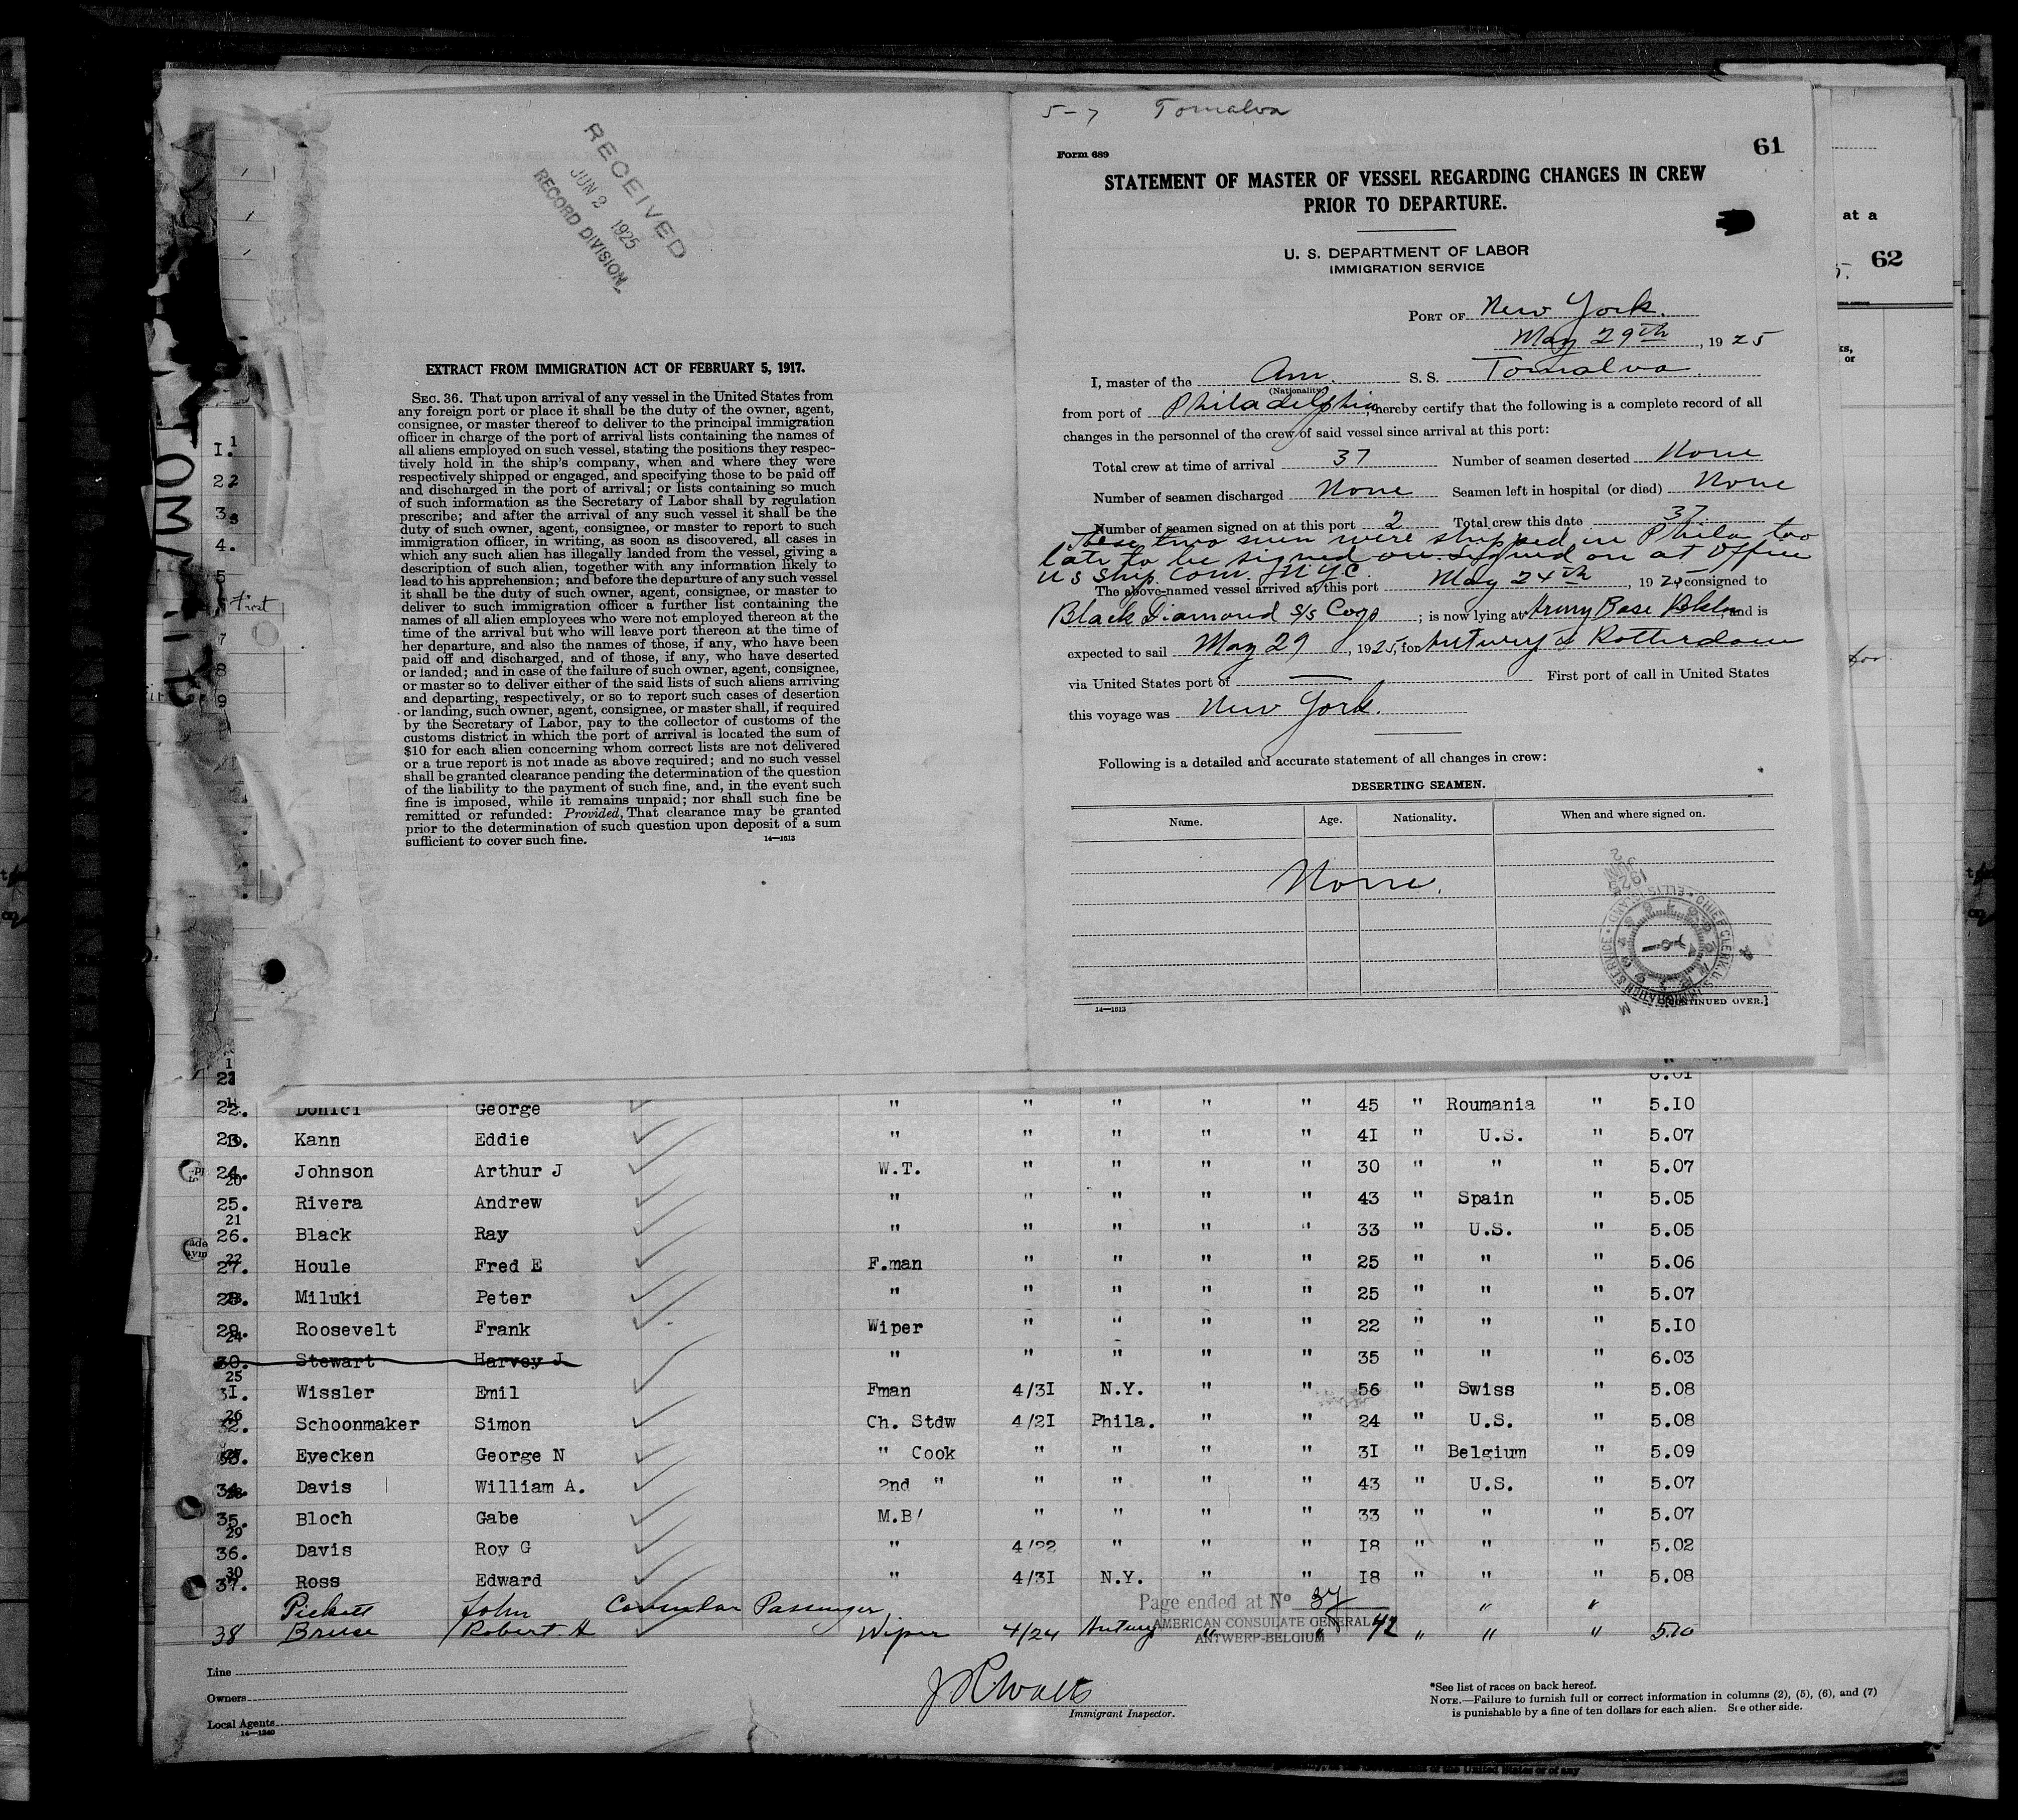 RECEIVED
JUN 2 1925
RECORD DIVISION
EXTRACT FROM IMMIGRATION ACT OF FEBRUARY 5, 1917.
SEC. 36. That upon arrival of any vessel in the United States from
any foreign port or place it shall be the duty of the owner, agent,
consignee, or master thereof to deliver to the principal immigration
officer in charge of the port of arrival lists containing the names of
all aliens employed on such vessel, stating the positions they respec-
tively hold in the ship's company, when and where they were
respectively shipped or engaged, and specifying those to be paid off
and discharged in the port of arrival; or lists containing so much
of such information as the Secretary of Labor shall by regulation
prescribe; and after the arrival of any such vessel it shall be the
duty of such owner, agent, consignee, or master to report to such
immigration officer, in writing, as soon as discovered, all cases in
which any such alien has illegally landed from the vessel, giving a
description of such alien, together with any information likely to
lead to his apprehension; and before the departure of any such vessel
it shall be the duty of such owner, agent, consignee, or master to
deliver to such immigration officer a further list containing the
names of all alien employees who were not employed thereon at the
time of the arrival but who will leave port thereon at the time of
her departure, and also the names of those, if any, who have been
paid off and discharged, and of those, if any, who have deserted
or landed; and in case of the failure of such owner, agent, consignee,
or master so to deliver either of the said lists of such aliens arriving
and departing, respectively, or so to report such cases of desertion
or landing, such owner, agent, consignee, or master shall, if required
by the Secretary of Labor, pay to the collector of customs of the
customs district in which the port of arrival is located the sum of
$10 for each alien concerning whom correct lists are not delivered
or a true report is not made as above required; and no such vessel
shall be granted clearance pending the determination of the question
of the liability to the payment of such fine, and, in the event such
fine is imposed, while it remains unpaid; nor shall such fine be
remitted or refunded: Provided, That clearance may be granted
prior to the determination of such question upon deposit of a sum
sufficient to cover such fine. 14—1613
5-7 Tomalva
Form 689
61
STATEMENT OF MASTER OF VESSEL REGARDING CHANGES IN CREW
PRIOR TO DEPARTURE.
U. S. DEPARTMENT OF LABOR
IMMIGRATION SERVICE
PORT OF New York.
May 29th, 1925
I, master of the Am. S. S. Tomalva.
(Nationality)
from port of Philadelphia, hereby certify that the following is a complete record of all
changes in the personnel of the crew of said vessel since arrival at this port:
Total crew at time of arrival 37 Number of seamen deserted None
Number of seamen discharged None Seamen left in hospital (or died) None
Number of seamen signed on at this port 2 Total crew this date 37
These two men were shipped in Phila too
late to be signed on. Signed on at Office
U S Ship. Com. N.Y.C.
The above-named vessel arrived at this port May 24th, 1925 consigned to
Black Diamond S/S Corp; is now lying at Army Base Bklyn, and is
expected to sail May 29, 1925, for Antwerp & Rotterdam
via United States port of — First port of call in United States
this voyage was New York.
Following is a detailed and accurate statement of all changes in crew:
DESERTING SEAMEN.
Name. Age. Nationality. When and where signed on.
None.
CHIEF CLERK, U.S. IMMIGRATION SERVICE • ELLIS ISLAND
14—1613 [CONTINUED OVER.]
at a
62
First
for
22. Doniel George " " " " " 45 " Roumania " 5.10
23. Kann Eddie " " " " " 41 " U.S. " 5.07
24. Johnson Arthur J W.T. " " " " 30 " " " 5.07
25. Rivera Andrew " " " " " 43 " Spain " 5.05
26. Black Ray " " " " " 33 " U.S. " 5.05
27. Houle Fred E F.man " " " " 25 " " " 5.06
28. Miluki Peter " " " " " 25 " " " 5.07
29. Roosevelt Frank Wiper " " " " 22 " " " 5.10
30. Stewart Harvey J " " " " " 35 " " " 6.03
31. Wissler Emil Fman 4/31 N.Y. " " 56 " Swiss " 5.08
32. Schoonmaker Simon Ch. Stdw 4/21 Phila. " " 24 " U.S. " 5.08
33. Eyecken George N " Cook " " " " 31 " Belgium " 5.09
34. Davis William A. 2nd " " " " " 43 " U.S. " 5.07
35. Bloch Gabe M.B " " " " 33 " " " 5.07
36. Davis Roy G " 4/22 " " " 18 " " " 5.02
37. Ross Edward " 4/31 N.Y. " " 18 " " " 5.08
Pickett John Consular Passenger " "
Page ended at No 37
AMERICAN CONSULATE GENERAL
ANTWERP-BELGIUM
38 Bruce Robert A Wiper 4/24 Antwerp " " 42 " " " 5.10
Line
Owners
Local Agents
14—1240
Immigrant Inspector.
*See list of races on back hereof.
NOTE.—Failure to furnish full or correct information in columns (2), (5), (6), and (7)
is punishable by a fine of ten dollars for each alien. See other side.